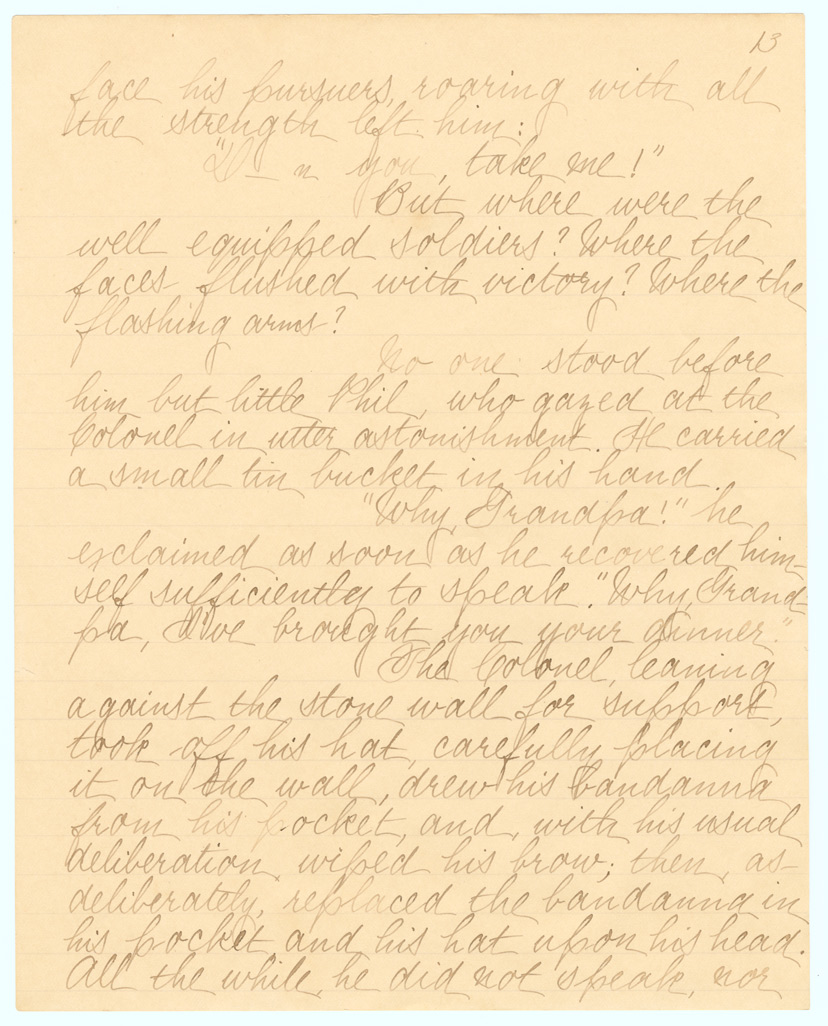 13
face his pursuers, roaring with all
the strength left him:
"D—n you, take me!"
But where were the
well equipped soldiers? Where the
faces flushed with victory? Where the
flashing arms?
No one stood before
him but little Phil, who gazed at the
Colonel in utter astonishment. He carried
a small tin bucket in his hand.
"Why, Grandpa!" he
exclaimed as soon as he recovered him-
self sufficiently to speak. "Why, Grand-
pa, I've brought you your dinner."
The Colonel, leaning
against the stone wall for support,
took off his hat, carefully placing
it on the wall, drew his bandanna
from his pocket, and, with his usual
deliberation, wiped his brow; then, as
deliberately, replaced the bandanna in
his pocket and his hat upon his head.
All the while, he did not speak, nor